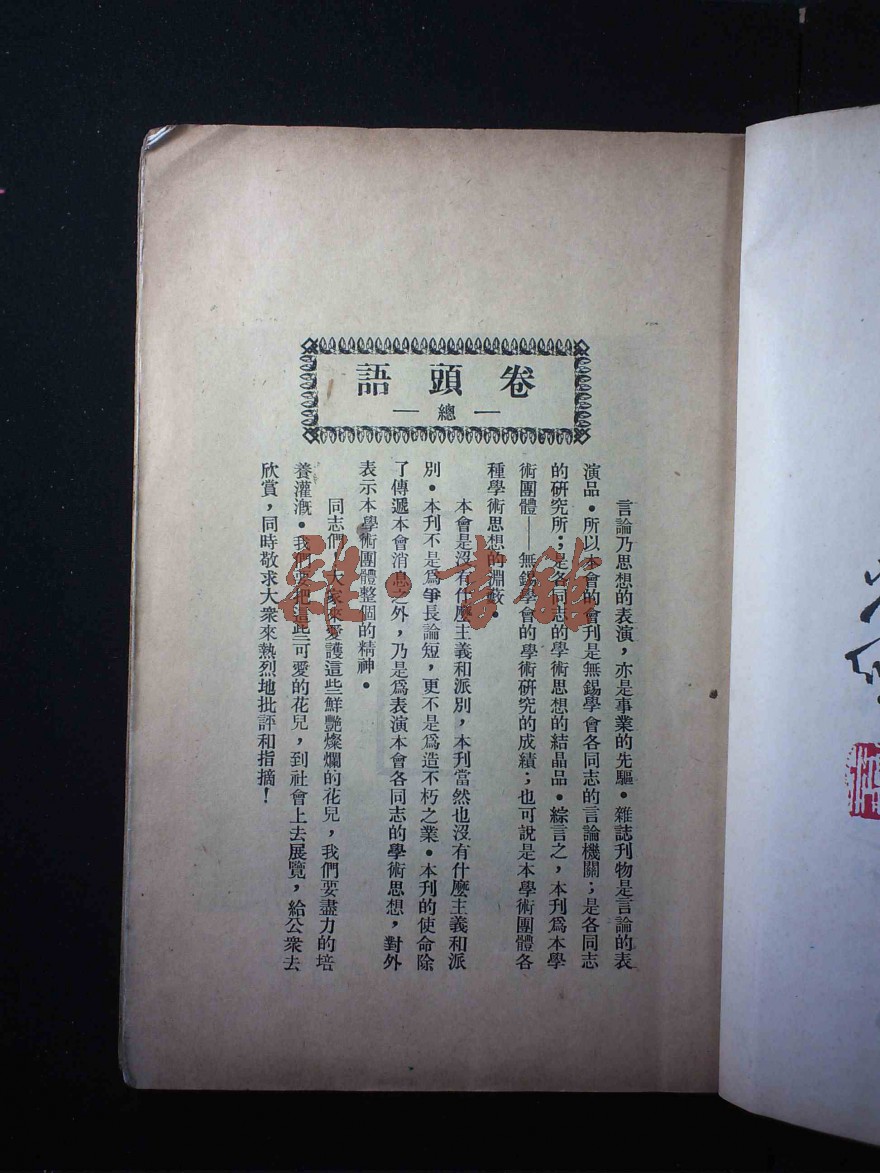 卷頭語
—總—
言論乃思想的表演，亦是事業的先驅。雜誌刊物是言論的表
演品。所以本會的會刊是無錫學會各同志的言論機關；是各同志
的研究所；是各同志的學術思想的結晶品。綜言之，本刊爲本學
術團體——無錫學會的學術研究的成績；也可說是本學術團體各
種學術思想的淵藪。
本會是沒有什麼主義和派別，本刊當然也沒有什麼主義和派
別。本刊不是爲爭長論短，更不是爲造不朽之業。本刊的使命除
了傳遞本會消息之外，乃是爲表演本會各同志的學術思想，對外
表示本學術團體整個的精神。
同志們！大家來愛護這些鮮艷燦爛的花兒，我們要盡力的培
養灌漑。我們要把這些可愛的花兒，到社會上去展覽，給公衆去
欣賞，同時敬求大衆來熱烈地批評和指摘！
雜·書館